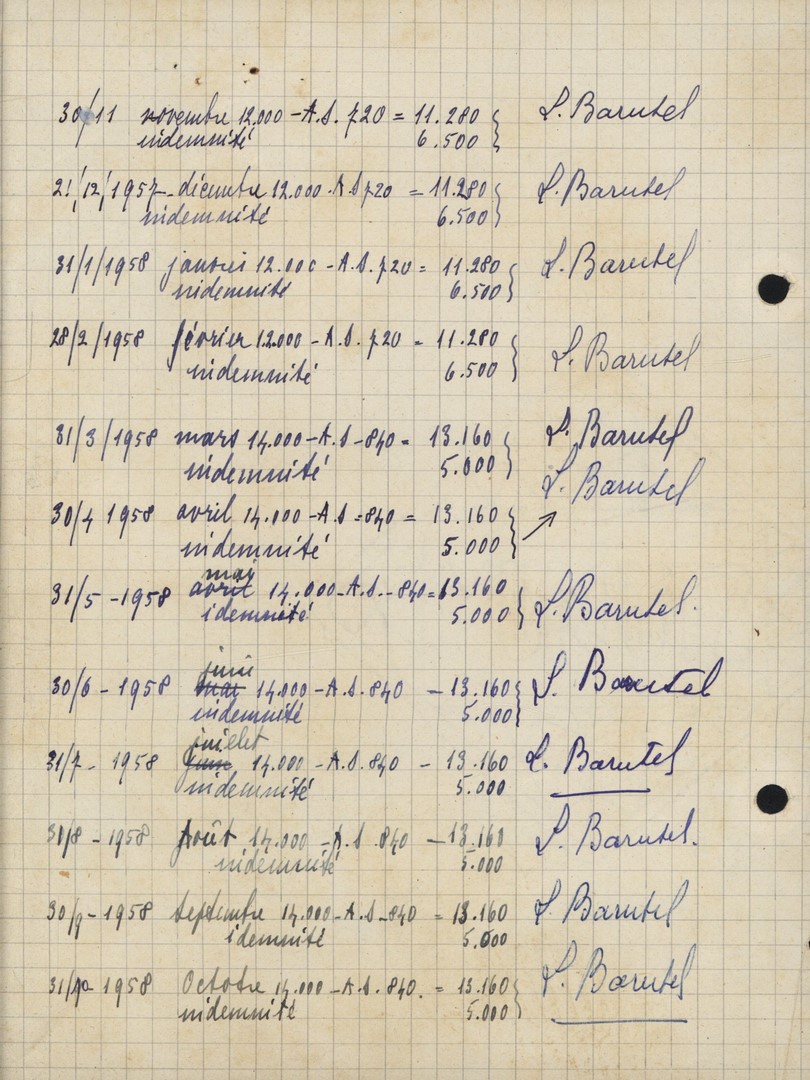 30/11 novembre 12.000 - A.S. 720 = 11.280 S. Barutel
indemnité 6.500
21/12/1957 - décembre 12.000 - A.S 720 = 11.280 S. Barutel
indemnité 6.500
31/1/1958 janvier 12.000 - A.S. 720 = 11.280 S. Barutel
indemnité 6.500
28/2/1958 février 12.000 - A.S. 720 = 11.280 S. Barutel
indemnité 6.500
31/3/1958 mars 14.000 - A.S - 840 = 13.160 S. Barutel
indemnité 5.000 S. Barutel
30/4 1958 avril 14.000 - A.S = 840 = 13.160
indemnité 5.000
mai
31/5 - 1958 avril 14.000 - A.S. - 840 = 13.160 S. Barutel.
idemnité 5.000
juin
30/6 - 1958 mai 14.000 - A.S. 840 - 13.160 S. Barutel
indemnité 5.000
juillet
31/7 - 1958 juin 14.000 - A.S. 840 - 13.160 S. Barutel
indemnité 5.000
31/8 - 1958 Août 14.000 - A.S 840 - 13.160 S. Barutel.
indemnité 5.000
30/9 - 1958 septembre 14.000 - A.S - 840 = 13.160 S. Barutel
idemnité 5.000
31/10 - 1958 Octobre 14.000 - A.S. 840. = 13.160 S. Barutel
indemnité 5.000